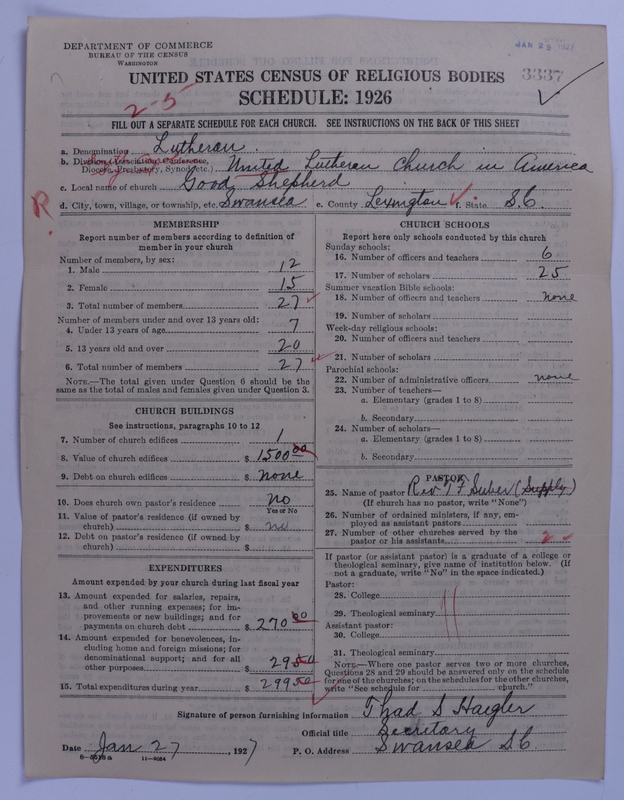 DEPARTMENT OF COMMERCE
BUREAU OF THE CENSUS
WASHINGTON
JAN 28 1927
UNITED STATES CENSUS OF RELIGIOUS BODIES
3337
SCHEDULE: 1926
2-5
FILL OUT A SEPARATE SCHEDULE FOR EACH CHURCH. SEE INSTRUCTIONS ON THE BACK OF THIS SHEET
a. Denomination Lutheran
b. Division (Association, Conference,
Diocese, Presbytery, Synod, etc.) United Lutheran Church in America
c. Local name of church Good Shepherd
R.
d. City, town, village, or township, etc. Swansea e. County Lexington f. State S.C.
MEMBERSHIP
Report number of members according to definition of
member in your church
Number of members, by sex:
1. Male 12
2. Female 15
3. Total number of members 27
Number of members under and over 13 years old:
4. Under 13 years of age 7
5. 13 years old and over 20
6. Total number of members 27
NOTE.—The total given under Question 6 should be the
same as the total of males and females given under Question 3.
CHURCH BUILDINGS
See instructions, paragraphs 10 to 12
7. Number of church edifices 1
8. Value of church edifices $ 1500 00
9. Debt on church edifices $ none
10. Does church own pastor's residence no
Yes or No
11. Value of pastor's residence (if owned by
church) $ no
12. Debt on pastor's residence (if owned by
church) $
EXPENDITURES
Amount expended by your church during last fiscal year
13. Amount expended for salaries, repairs,
and other running expenses; for im-
provements or new buildings; and for
payments on church debt $ 270 00
14. Amount expended for benevolences, in-
cluding home and foreign missions; for
denominational support; and for all
other purposes $ 29 50
15. Total expenditures during year $ 299 50
CHURCH SCHOOLS
Report here only schools conducted by this church
Sunday schools:
16. Number of officers and teachers 6
17. Number of scholars 25
Summer vacation Bible schools:
18. Number of officers and teachers none
19. Number of scholars
Week-day religious schools:
20. Number of officers and teachers
21. Number of scholars
Parochial schools:
22. Number of administrative officers none
23. Number of teachers—
a. Elementary (grades 1 to 8)
b. Secondary
24. Number of scholars—
a. Elementary (grades 1 to 8)
b. Secondary
PASTOR
25. Name of pastor Rev T F Suber (Supply)
(If church has no pastor, write "None")
26. Number of ordained ministers, if any, em-
ployed as assistant pastors
27. Number of other churches served by the
pastor or his assistants 2
If pastor (or assistant pastor) is a graduate of a college or
theological seminary, give name of institution below. (If
not a graduate, write "No" in the space indicated.)
Pastor:
28. College
29. Theological seminary
Assistant pastor:
30. College
31. Theological seminary
NOTE.—Where one pastor serves two or more churches,
Questions 28 and 29 should be answered only on the schedule
for one of the churches; on the schedules for the other churches,
write "See schedule for church."
Signature of person furnishing information Thad S Haigler
Official title Secretary
Date Jan 27, 1927 P. O. Address Swansea S.C.
11-9084